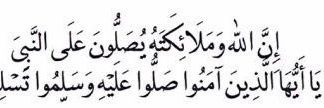 إِنَّ اللهَ وَمَلَائِكَتَهُ يُصَلُّونَ عَلَى النَّبِيِّ
يَا أَيُّهَا الَّذِينَ آمَنُوا صَلُّوا عَلَيْهِ وَسَلِّمُوا